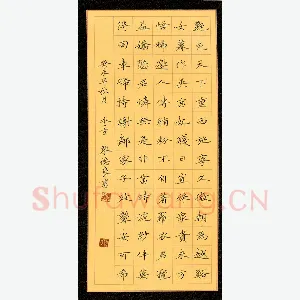 艷色天下重西施寧久微朝為越溪
女暮作吳宮妃賤日豈殊眾貴來方
悟稀邀人傅脂粉不自著羅衣君寵
益嬌態君憐無是非當時浣紗伴莫
得同車歸持謝鄰家子效顰安可希
年秋月
Shufawang.CN